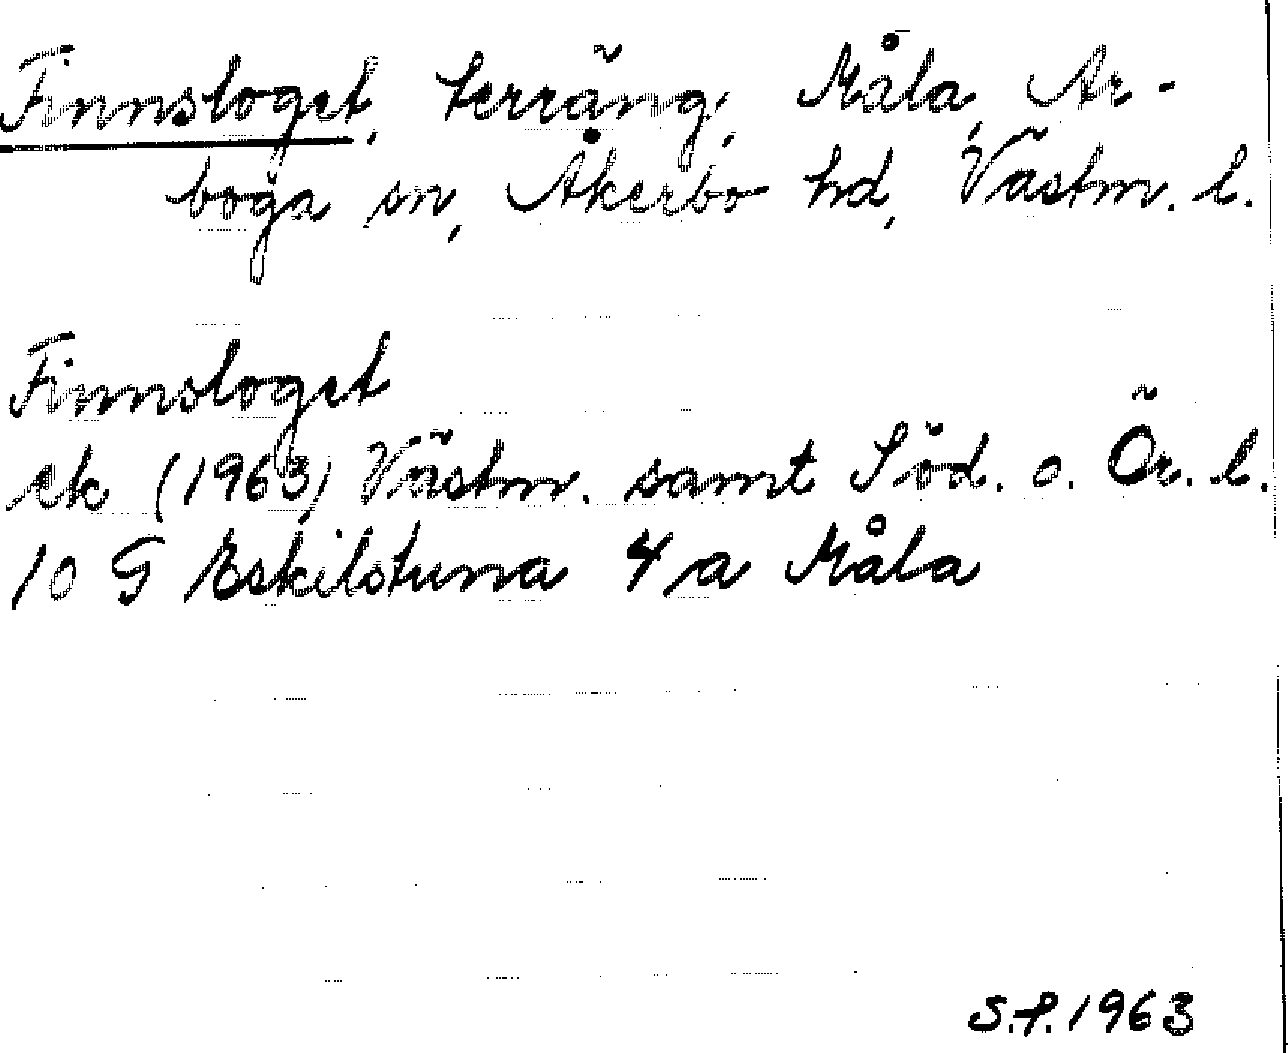 Finnsloget, terräng, Måla, Ar-
boga sn, Åkerbo hd, Västm. l.
Finnsloget
ek (1963) Västm. samt Söd. o. Ör. l.
10 G Eskilstuna 4 a Måla
S.P. 1963